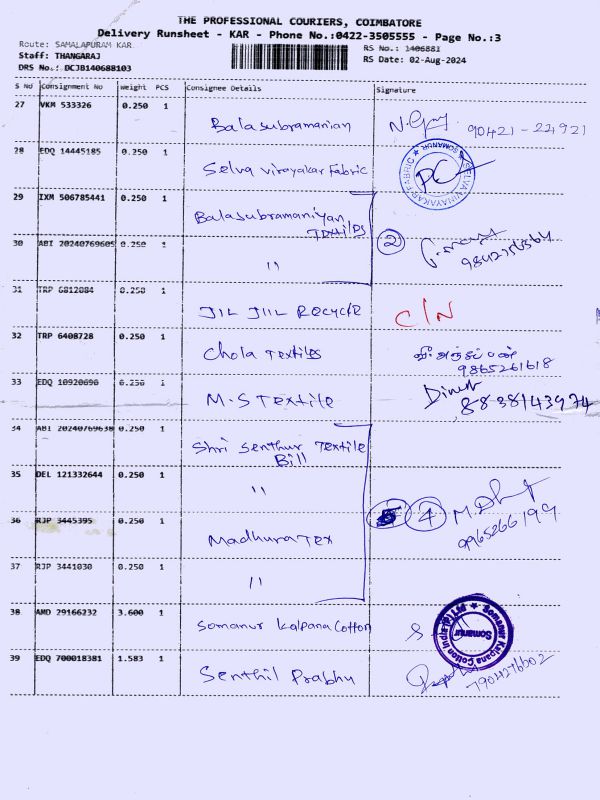 THE PROFESSIONAL COURIERS, COIMBATORE
Delivery Runsheet - KAR - Phone No.:0422-3505555 - Page No.:3
Route: SAMALAPURAM KAR
RS No.: 1406881
Staff: THANGARAJ
RS Date: 02-Aug-2024
DRS No.: DCJB140688103
S No Consignment No Weight PCS Consignee Details Signature
27 VKM 533326 0.250 1
Balasubramanian 90421-22921
28 EDQ 14445185 0.250 1
Selva vinayakar Fabric
SELVA VINAYAKAR FABRIC ★ SOMANUR ★
29 IXM 506785441 0.250 1
Balasubramaniyan
Textiles
30 ABI 20240769605 0.250 1
" 2
31 TRP 6812084 0.250 1
JIL JIIL RECYCLE C/N
32 TRP 6408728 0.250 1
Chola Textiles
9865261618
33 EDQ 10920690 0.250 1
M.S Textile 8838143974
34 ABI 20240769638 0.250 1
Shri Senthur Textile
Bill
35 DEL 121332644 0.250 1
"
36 RJP 3445395 0.250 1
Madhura Tex 4
37 RJP 3441030 0.250 1
"
38 AMD 29166232 3.600 1
Somanur Kalpana Cotton
Somanur Kalpana Cotton India (P) Ltd ★ Somanur
39 EDQ 700018381 1.583 1
Senthil Prabhu 7904276602